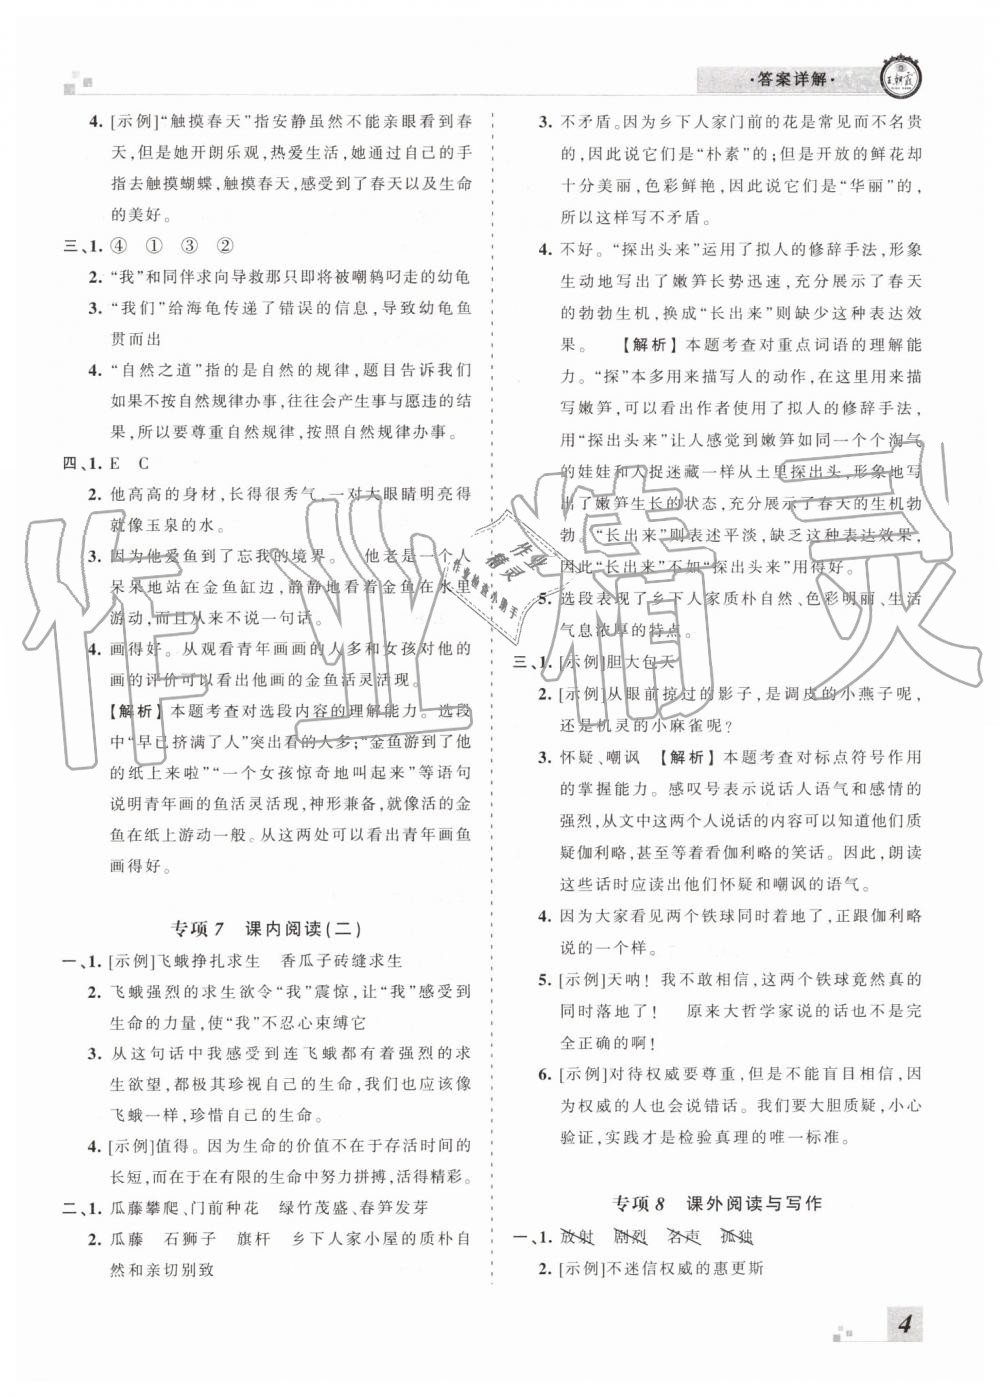 ·答案详解·
王朝霞
4. [示例]“触摸春天”指安静虽然不能亲眼看到春
天,但是她开朗乐观,热爱生活,她通过自己的手
指去触摸蝴蝶,触摸春天,感受到了春天以及生命
的美好。
三、1. ④ ① ③ ②
2. “我”和同伴求向导救那只即将被嘲鸫叼走的幼龟
3. “我们”给海龟传递了错误的信息,导致幼龟鱼
贯而出
4. “自然之道”指的是自然的规律,题目告诉我们
如果不按自然规律办事,往往会产生事与愿违的结
果,所以要尊重自然规律,按照自然规律办事。
四、1. E C
2. 他高高的身材,长得很秀气,一对大眼睛明亮得
就像玉泉的水。
3. 因为他爱鱼到了忘我的境界。 他老是一个人
呆呆地站在金鱼缸边,静静地看着金鱼在水里
游动,而且从来不说一句话。
4. 画得好。从观看青年画画的人多和女孩对他的
画的评价可以看出他画的金鱼活灵活现。
【解析】本题考查对选段内容的理解能力。选段
中“早已挤满了人”突出看的人多;“金鱼游到了他
的纸上来啦”“一个女孩惊奇地叫起来”等语句
说明青年画的鱼活灵活现,神形兼备,就像活的金
鱼在纸上游动一般。从这两处可以看出青年画鱼
画得好。
专项7 课内阅读(二)
一、1. [示例]飞蛾挣扎求生 香瓜子砖缝求生
2. 飞蛾强烈的求生欲令“我”震惊,让“我”感受到
生命的力量,使“我”不忍心束缚它
3. 从这句话中我感受到连飞蛾都有着强烈的求
生欲望,都极其珍视自己的生命,我们也应该像
飞蛾一样,珍惜自己的生命。
4. [示例]值得。因为生命的价值不在于存活时间的
长短,而在于在有限的生命中努力拼搏,活得精彩。
二、1. 瓜藤攀爬、门前种花 绿竹茂盛、春笋发芽
2. 瓜藤 石狮子 旗杆 乡下人家小屋的质朴自
然和亲切别致
3. 不矛盾。因为乡下人家门前的花是常见而不名贵
的,因此说它们是“朴素”的;但是开放的鲜花却
十分美丽,色彩鲜艳,因此说它们是“华丽”的,
所以这样写不矛盾。
4. 不好。“探出头来”运用了拟人的修辞手法,形象
生动地写出了嫩笋长势迅速,充分展示了春天
的勃勃生机,换成“长出来”则缺少这种表达效
果。 【解析】本题考查对重点词语的理解能
力。“探”本多用来描写人的动作,在这里用来描
写嫩笋,可以看出作者使用了拟人的修辞手法,
用“探出头来”让人感觉到嫩笋如同一个个淘气
的娃娃和人捉迷藏一样从土里探出来,形象地写
出了嫩笋生长的状态,充分展示了春天的生机勃
勃。“长出来”则表达平淡,缺乏这种表达效果,
因此“长出来”不如“探出头来”用得好。
5. 选段表现了乡下人家质朴自然、色彩明丽、生活
气息浓厚的特点。
三、1. [示例]胆大包天
2. [示例]从眼前掠过的影子,是调皮的小燕子呢,
还是机灵的小麻雀呢?
3. 怀疑、嘲讽 【解析】本题考查对标点符号作用
的掌握能力。感叹号表示说话人语气和感情的
强烈,从文中这两个人说话的内容可以知道他们质
疑伽利略,甚至等着看伽利略的笑话。因此,朗读
这些话时应读出他们怀疑和嘲讽的语气。
4. 因为大家看见两个铁球同时着地了,正跟伽利略
说的一个样。
5. [示例]天呐! 我不敢相信,这两个铁球竟然真的
同时落地了! 原来大哲学家说的话也不是完
全正确的啊!
6. [示例]对待权威要尊重,但是不能盲目相信,因
为权威的人也会说错话。我们要大胆质疑,小心
验证,实践才是检验真理的唯一标准。
专项8 课外阅读与写作
一、1. 放射 剧烈 名声 孤独
2. [示例]不迷信权威的惠更斯
4
作业精灵
作业
精灵
作业检查小助手